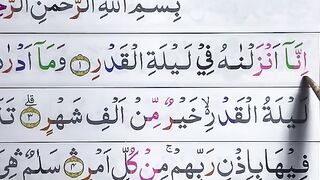 بِسْمِ اللهِ الرَّحْمٰنِ الرَّ
اِنَّاۤ اَنْزَلْنٰهُ فِيْ لَيْلَةِ الْقَدْرِ ۝۱ وَمَاۤ اَدْرٰ
لَيْلَةُ الْقَدْرِ ۙ خَيْرٌ مِّنْ اَلْفِ شَهْرٍ ۝۳ تَ
فِيْهَا بِاِذْنِ رَبِّهِمْ ۚ مِنْ كُلِّ اَمْرٍ ۝۴ سَلٰمٌ ۛ هِيَ